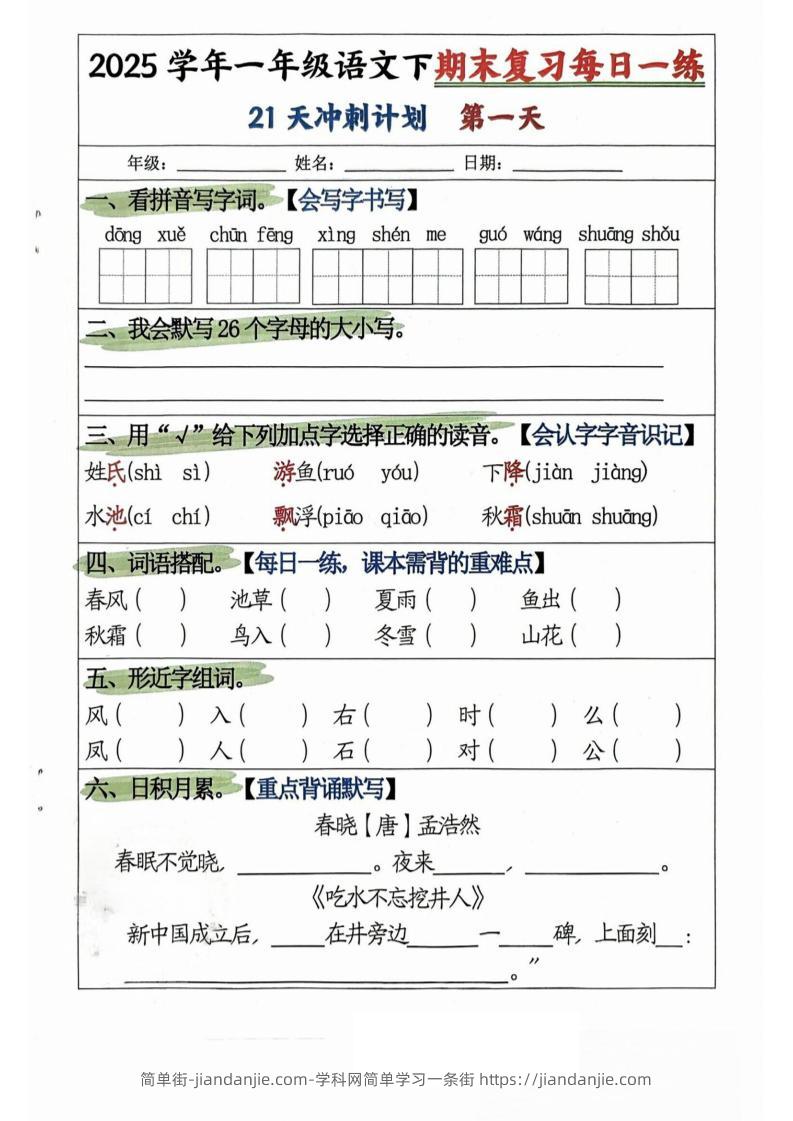 2025 学年一年级语文下期末复习每日一练
21 天冲刺计划 第一天
年级：____________ 姓名：____________ 日期：____________
一、看拼音写字词。【会写字书写】
dōng xuě chūn fēng xìng shén me guó wáng shuāng shǒu
二、我会默写 26 个字母的大小写。
三、用“√”给下列加点字选择正确的读音。【会认字字音识记】
姓氏(shì sì) 游鱼(ruó yóu) 下降(jiàn jiàng)
水池(cí chí) 飘浮(piāo qiāo) 秋霜(shuān shuāng)
四、词语搭配。【每日一练，课本需背的重难点】
春风（ ） 池草（ ） 夏雨（ ） 鱼出（ ）
秋霜（ ） 鸟入（ ） 冬雪（ ） 山花（ ）
五、形近字组词。
风（ ） 入（ ） 右（ ） 时（ ） 么（ ）
凤（ ） 人（ ） 石（ ） 对（ ） 公（ ）
六、日积月累。【重点背诵默写】
春晓【唐】孟浩然
春眠不觉晓，____________。夜来______，____________。
《吃水不忘挖井人》
新中国成立后，_____在井旁边______一_____碑，上面刻__：
____________________________________。”
简单街-jiandanjie.com-学科网简单学习一条街 https://jiandanjie.com